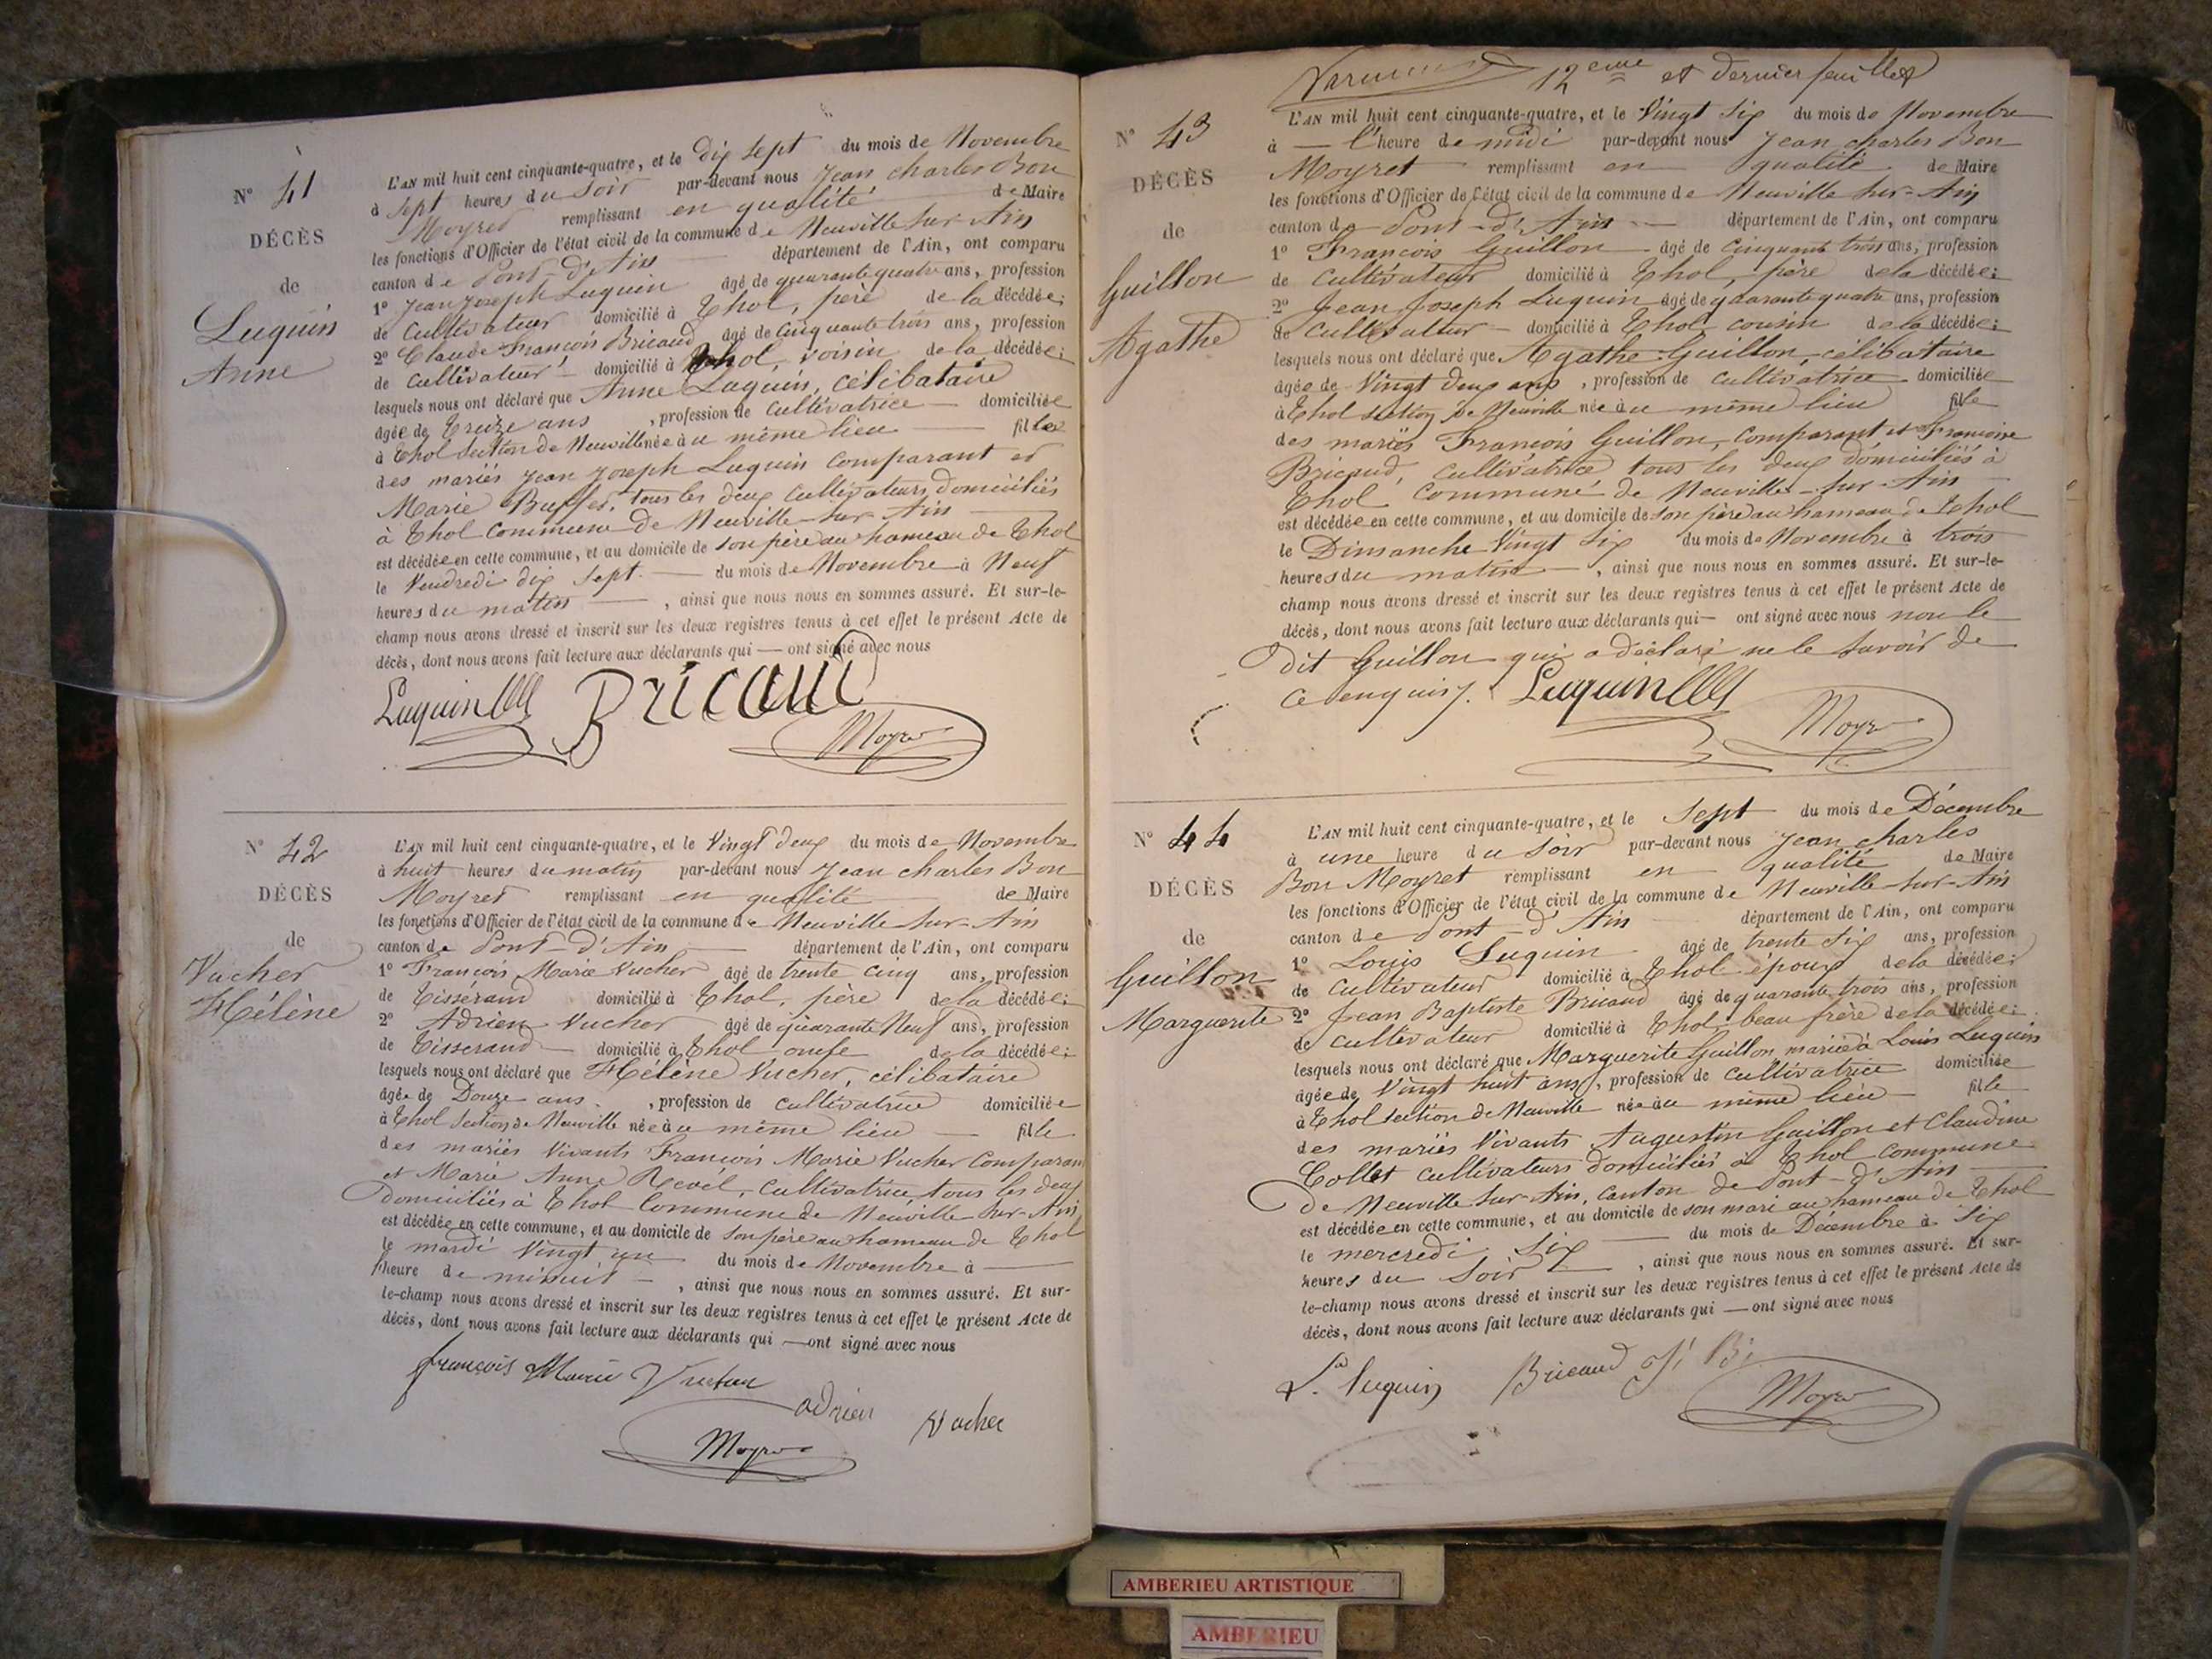 N° 41
DÉCÈS
de
Luquin
Anne
L'AN mil huit cent cinquante-quatre, et le dix sept du mois de Novembre
à sept heures du soir par-devant nous Jean charles Bon
Moyret remplissant en qualité de Maire
les fonctions d'Officier de l'état civil de la commune de Neuville sur-Ain
canton de Pont-d'Ain département de l'Ain, ont comparu
1° Jean Joseph Luquin âgé de quarante quatre ans, profession
de Cultivateur domicilié à Thol, père de la décédée;
2° Claude François Bricaud âgé de Cinquante trois ans, profession
de cultivateur domicilié à Thol, voisin de la décédée;
lesquels nous ont déclaré que Anne Luquin, célibataire
âgée de Treize ans, profession de Cultivatrice domiciliée
à Thol section de Neuville née à u même lieu fille
des mariés Jean Joseph Luquin comparant et
Marie Buffet, tous les deux Cultivateurs domiciliés
à Thol Commune de Neuville-sur-Ain
est décédée en cette commune, et au domicile de son père au hameau de Thol
le Vendredi dix sept du mois de Novembre à Neuf
heures du matin, ainsi que nous nous en sommes assuré. Et sur-le-
champ nous avons dressé et inscrit sur les deux registres tenus à cet effet le présent Acte de
décès, dont nous avons fait lecture aux déclarants qui — ont signé avec nous
Luquin Bricaud
Moyret
N° 42
DÉCÈS
de
Vucher
Hélène
L'AN mil huit cent cinquante-quatre, et le Vingt deux du mois de Novembre
à huit heures du matin par-devant nous Jean charles Bon
Moyret remplissant en qualité de Maire
les fonctions d'Officier de l'état civil de la commune de Neuville-sur-Ain
canton de Pont-d'Ain département de l'Ain, ont comparu
1° François Marie Vucher âgé de trente cinq ans, profession
de Tissérand domicilié à Thol, père de la décédée;
2° Adrien Vucher âgé de quarante Neuf ans, profession
de Tisserand domicilié à Thol oncle de la décédée;
lesquels nous ont déclaré que Hélène Vucher, célibataire
âgée de Douze ans, profession de cultivatrice domiciliée
à Thol section de Neuville née à u même lieu fille
des mariés Vivants François Marie Vucher Comparant
et Marie Anne Revel, cultivatrice, tous les deux
domiciliés à Thol Commune de Neuville-sur-Ain,
est décédée en cette commune, et au domicile de son père au hameau de Thol
le mardi Vingt un du mois de Novembre à
l'heure de minuit, ainsi que nous nous en sommes assuré. Et sur-
le-champ nous avons dressé et inscrit sur les deux registres tenus à cet effet le présent Acte de
décès, dont nous avons fait lecture aux déclarants qui — ont signé avec nous
françois Marie Vucher
adrien Vucher
Moyret
12eme et dernier feuillet
N° 43
DÉCÈS
de
Guillon
Agathe
L'AN mil huit cent cinquante-quatre, et le Vingt Six du mois de Novembre
à — l'heure de midi par-devant nous Jean charles Bon
Moyret remplissant en qualité de Maire
les fonctions d'Officier de l'état civil de la commune de Neuville sur-Ain
canton de Pont-d'Ain département de l'Ain, ont comparu
1° François Guillon âgé de cinquante trois ans, profession
de Cultivateur domicilié à Thol, père de la décédée;
2° Jean Joseph Luquin âgé de quarante quatre ans, profession
de Cultivateur domicilié à Thol, cousin de la décédée;
lesquels nous ont déclaré que Agathe Guillon, célibataire
âgée de Vingt deux ans, profession de cultivatrice domiciliée
à Thol section de Neuville née à u même lieu fille
des mariés François Guillon, Comparant et Françoise
Bricaud, Cultivatrice tous les deux domiciliés à
Thol Commune de Neuville-sur-Ain
est décédée en cette commune, et au domicile de son père au hameau de Thol
le Dimanche Vingt Six du mois de Novembre à trois
heures du matin, ainsi que nous nous en sommes assuré. Et sur-le-
champ nous avons dressé et inscrit sur les deux registres tenus à cet effet le présent Acte de
décès, dont nous avons fait lecture aux déclarants qui — ont signé avec nous non le
dit Guillon qui a déclaré ne le savoir de
ce enquis. Luquin
Moyret
N° 44
DÉCÈS
de
Guillon
Marguerite
L'AN mil huit cent cinquante-quatre, et le Sept du mois de Décembre
à une heure du soir par-devant nous Jean charles
Bon Moyret remplissant en qualité de Maire
les fonctions d'Officier de l'état civil de la commune de Neuville-sur-Ain
canton de Pont-d'Ain département de l'Ain, ont comparu
1° Louis Luquin âgé de trente six ans, profession
de cultivateur domicilié à Thol époux de la décédée;
2° Jean Baptiste Bricaud âgé de quarante trois ans, profession
de cultivateur domicilié à Thol, beau frère de la décédée;
lesquels nous ont déclaré que Marguerite Guillon, mariée à Louis Luquin
âgée de Vingt huit ans, profession de cultivatrice domiciliée
à Thol section de Neuville née à u même lieu fille
des mariés Vivants Augustin Guillon et Claudine
Collet cultivateurs domiciliés à Thol commune
de Neuville sur-Ain, canton de Pont-d'Ain
est décédée en cette commune, et au domicile de son mari au hameau de Thol
le mercredi six du mois de Décembre à six
heures du soir, ainsi que nous nous en sommes assuré. Et sur-
le-champ nous avons dressé et inscrit sur les deux registres tenus à cet effet le présent Acte de
décès, dont nous avons fait lecture aux déclarants qui — ont signé avec nous
L. luquin Bricaud J. B.
Moyret
AMBERIEU ARTISTIQUE
AMBERIEU